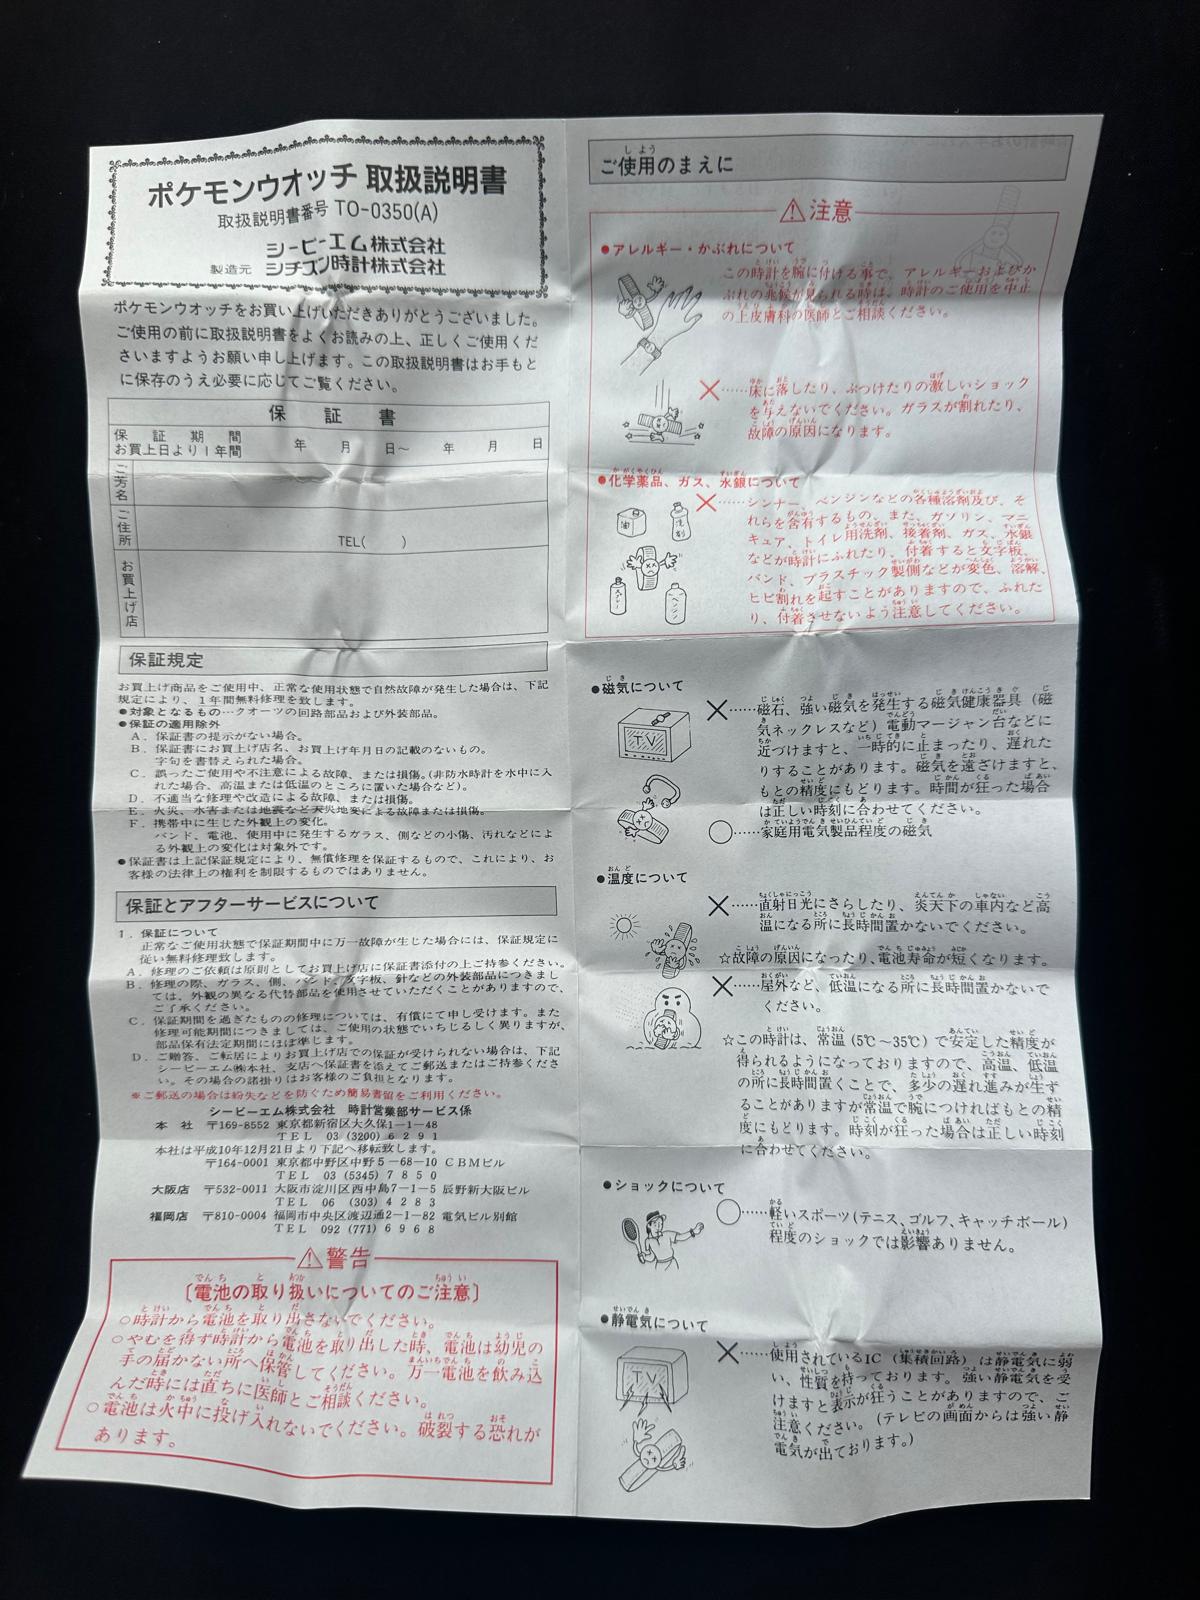 ポケモンウオッチ 取扱説明書
取扱説明書番号 TO-0350(A)
シービーエム株式会社
製造元 シチズン時計株式会社
ポケモンウオッチをお買い上げいただきありがとうございました。
ご使用の前に取扱説明書をよくお読みの上、正しくご使用くだ
さいますようお願い申し上げます。この取扱説明書はお手もと
に保存のうえ必要に応じてご覧ください。
保証書
保証期間
お買上日より1年間
年 月 日～ 年 月 日
ご芳名
ご住所
TEL( )
お買上げ店
保証規定
お買上げ商品をご使用中、正常な使用状態で自然故障が発生した場合は、下記
規定により、1年間無料修理を致します。
●対象となるもの…クオーツの回路部品および外装部品。
●保証の適用除外
A．保証書の提示がない場合。
B．保証書にお買上げ店名、お買上げ年月日の記載のないもの。
字句を書替えられた場合。
C．誤ったご使用や不注意による故障、または損傷。(非防水時計を水中に入
れた場合、高温または低温のところに置いた場合など)。
D．不適当な修理や改造による故障、または損傷。
E．火災、水害または地震など天災地変による故障または損傷。
F．携帯中に生じた外観上の変化。
バンド、電池、使用中に発生するガラス、側などの小傷、汚れなどによ
る外観上の変化は対象外です。
●保証書は上記保証規定により、無償修理を保証するもので、これにより、お
客様の法律上の権利を制限するものではありません。
保証とアフターサービスについて
1．保証について
正常なご使用状態で保証期間中に万一故障が生じた場合には、保証規定に
従い無料修理致します。
A．修理のご依頼は原則としてお買上げ店に保証書添付の上ご持参ください。
B．修理の際、ガラス、側、バンド、文字板、針などの外装部品につきまし
ては、外観の異なる代替部品を使用させていただくことがありますので、
ご了承ください。
C．保証期間を過ぎたものの修理については、有償にて申し受けます。また
修理可能期間につきましては、ご使用の状態でいちじるしく異りますが、
部品保有法定期間にほぼ準じます。
D．ご贈答、ご転居によりお買上げ店での保証が受けられない場合は、下記
シービーエム㈱本社、支店へ保証書を添えてご郵送またはご持参くださ
い。その場合の諸掛りはお客様のご負担となります。
※ご郵送の場合は紛失などを防ぐため簡易書留をご利用ください。
シービーエム株式会社 時計営業部サービス係
本 社 〒169-8552 東京都新宿区大久保1-1-48
TEL 03 (3200) 6291
本社は平成10年12月21日より下記へ移転致します。
〒164-0001 東京都中野区中野5-68-10 CBMビル
TEL 03 (5345) 7850
大阪店 〒532-0011 大阪市淀川区西中島7-1-5 辰野新大阪ビル
TEL 06 (303) 4283
福岡店 〒810-0004 福岡市中央区渡辺通2-1-82 電気ビル別館
TEL 092 (771) 6968
⚠警告
〔電池の取り扱いについてのご注意〕
○時計から電池を取り出さないでください。
○やむを得ず時計から電池を取り出した時、電池は幼児の
手の届かない所へ保管してください。万一電池を飲み込
んだ時には直ちに医師とご相談ください。
○電池は火中に投げ入れないでください。破裂する恐れが
あります。
ご使用のまえに
⚠注意
●アレルギー・かぶれについて
この時計を腕に付ける事で、アレルギーおよびか
ぶれの兆候が見られる時は、時計のご使用を中止
の上皮膚科の医師とご相談ください。
×……床に落したり、ぶつけたりの激しいショック
を与えないでください。ガラスが割れたり、
故障の原因になります。
●化学薬品、ガス、水銀について
×……シンナー、ベンジンなどの各種溶剤及び、そ
れらを含有するもの、また、ガソリン、マニ
キュア、トイレ用洗剤、接着剤、ガス、水銀
などが時計にふれたり、付着すると文字板、
バンド、プラスチック製側などが変色、溶解、
ヒビ割れを起すことがありますので、ふれた
り、付着させないよう注意してください。
油
洗剤
スプレー
ベンジン
●磁気について
×……磁石、強い磁気を発生する磁気健康器具（磁
気ネックレスなど）電動マージャン台などに
近づけますと、一時的に止まったり、遅れた
りすることがあります。磁気を遠ざけますと、
もとの精度にもどります。時間が狂った場合
は正しい時刻に合わせてください。
TV
○……家庭用電気製品程度の磁気
●温度について
×……直射日光にさらしたり、炎天下の車内など高
温になる所に長時間置かないでください。
☆故障の原因になったり、電池寿命が短くなります。
×……屋外など、低温になる所に長時間置かないで
ください。
☆この時計は、常温(5℃～35℃)で安定した精度が
得られるようになっておりますので、高温、低温
の所に長時間置くことで、多少の遅れ進みが生ず
ることがありますが常温で腕につければもとの精
度にもどります。時刻が狂った場合は正しい時刻
に合わせてください。
●ショックについて
○……軽いスポーツ(テニス、ゴルフ、キャッチボール)
程度のショックでは影響ありません。
●静電気について
×……使用されているIC（集積回路）は静電気に弱
い、性質を持っております。強い静電気を受
けますと表示が狂うことがありますので、ご
注意ください。（テレビの画面からは強い静
電気が出ております。）
TV